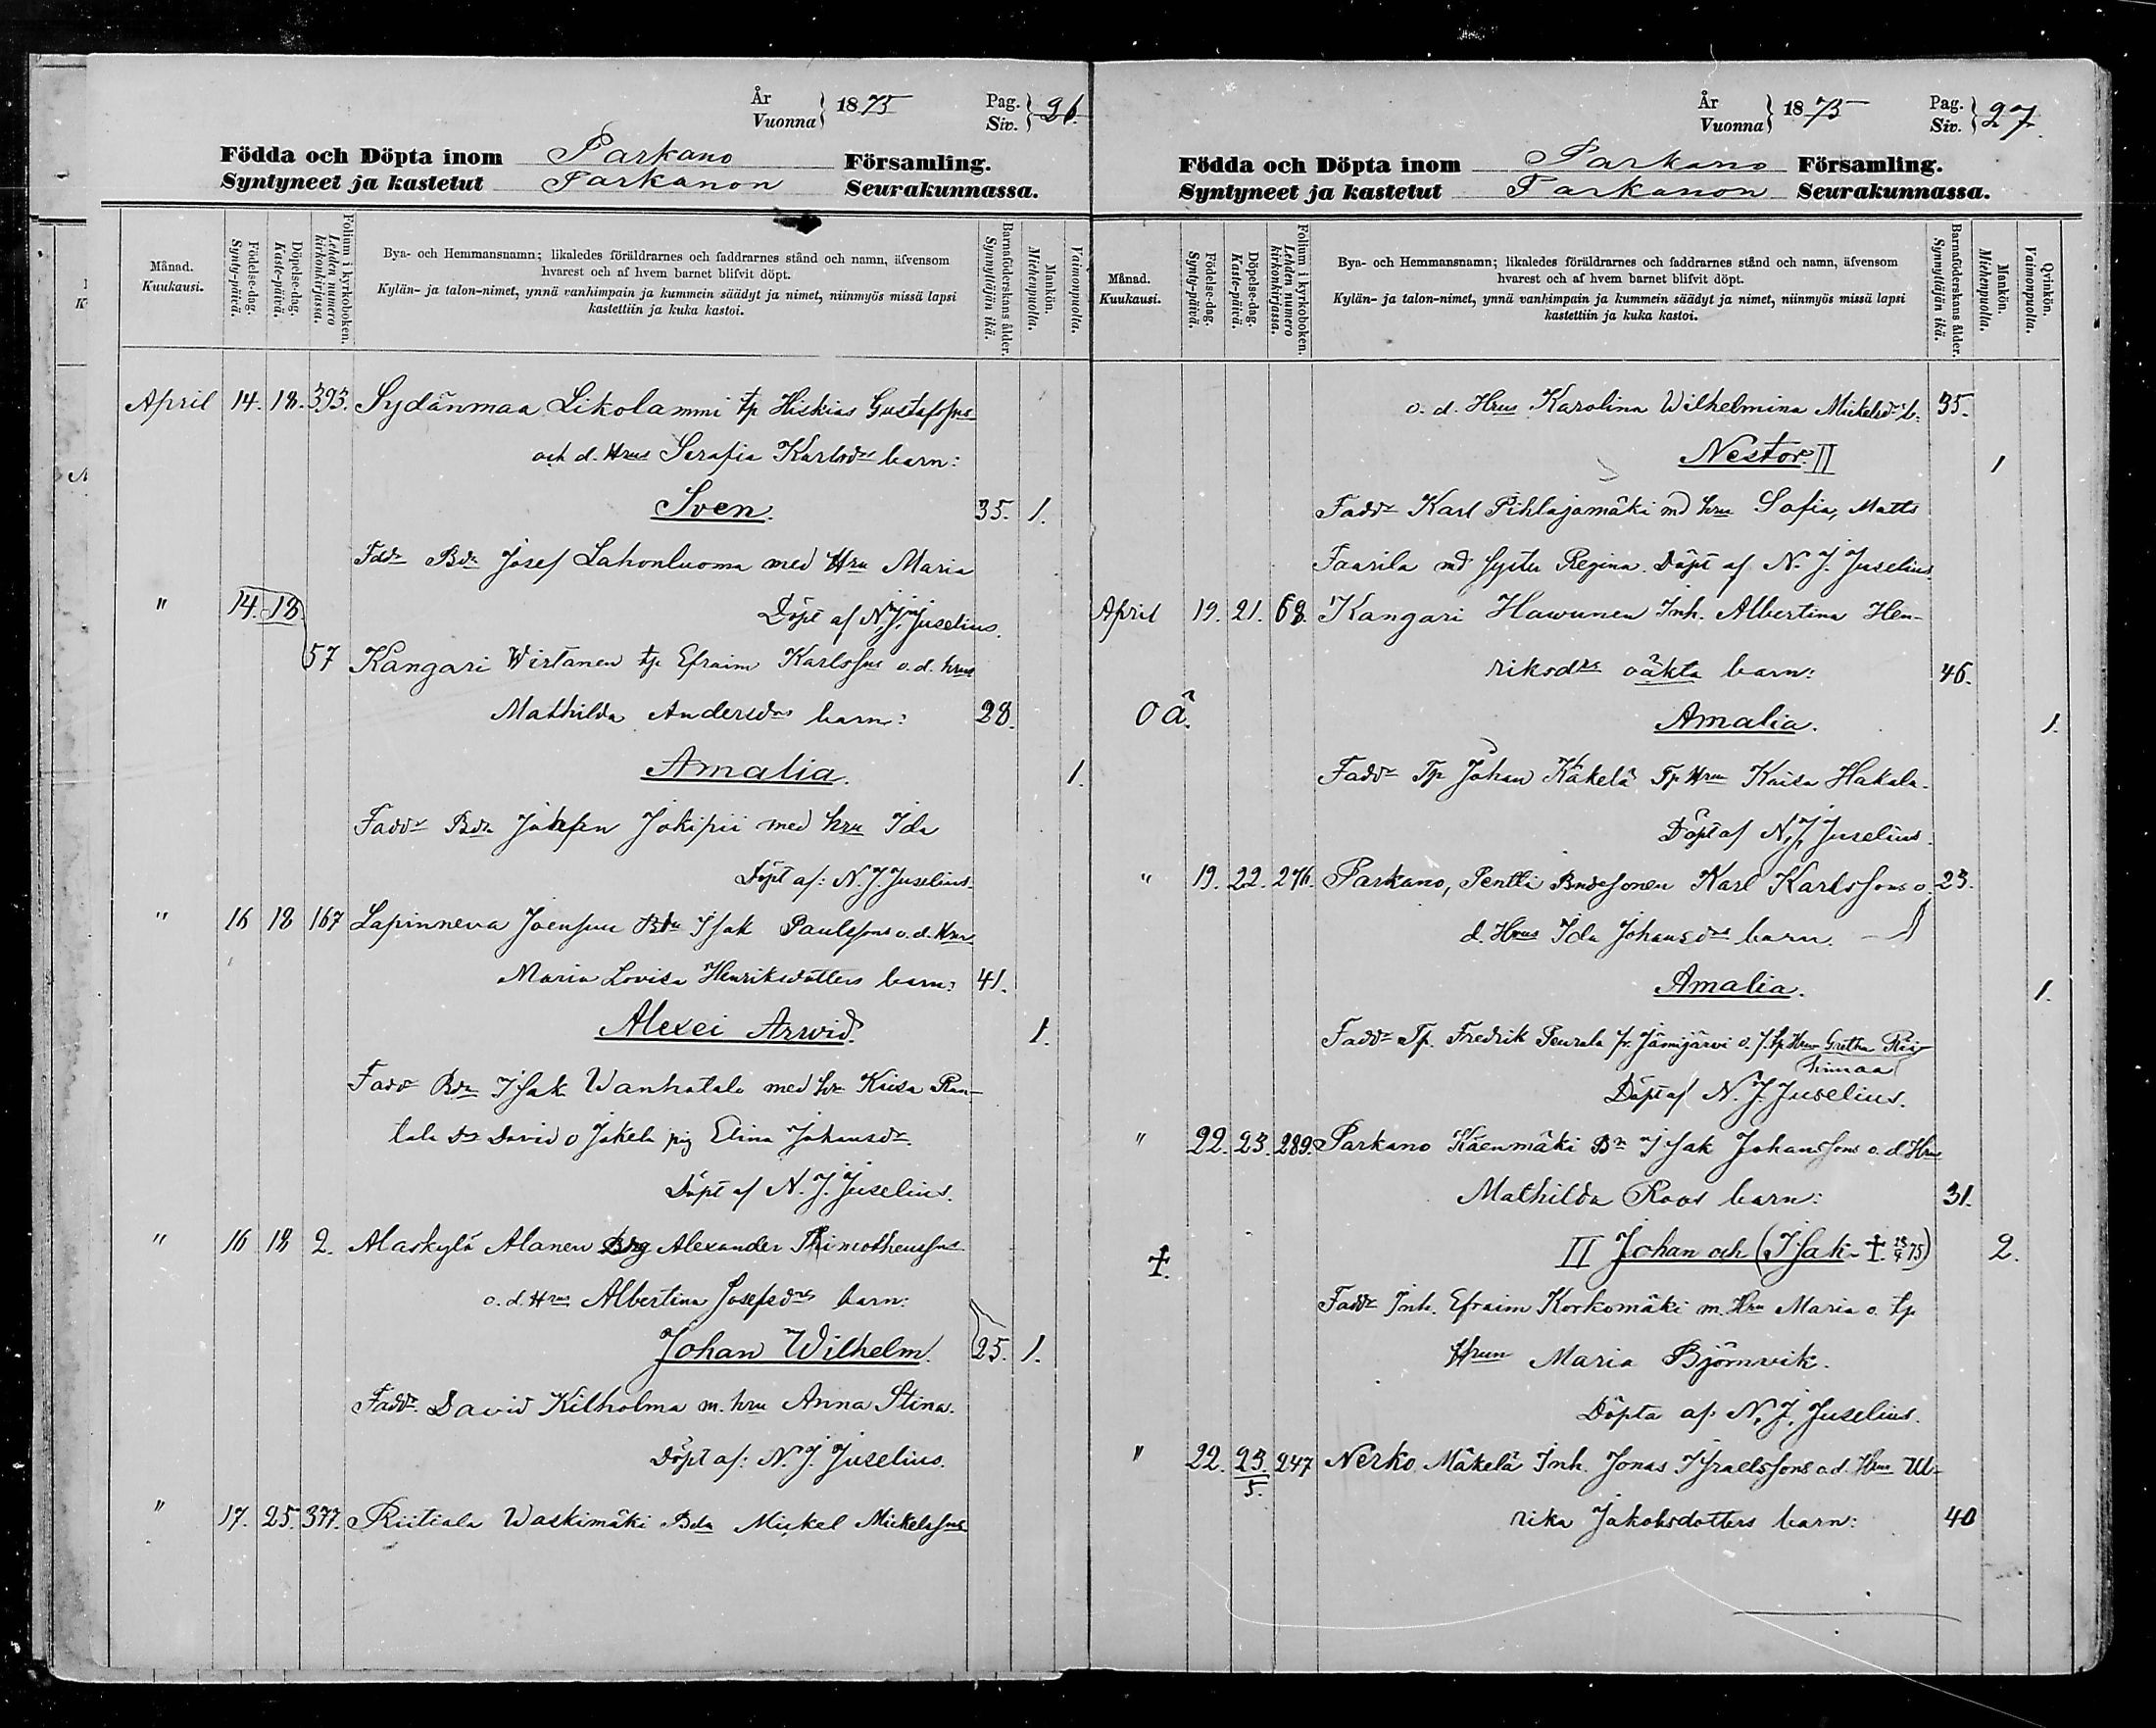 År
Vuonna } 1875 Pag.
Siv. } 26.
Födda och Döpta inom Parkano Församling.
Syntyneet ja kastetut Parkanon Seurakunnassa.
Månad.
Kuukausi.
Födelse-dag.
Synty-päivä.
Döpelse-dag.
Kaste-päivä.
Folium i kyrkoboken.
Lehden numero
kirkonkirjassa.
Bya- och Hemmansnamn; likaledes föräldrarnes och faddrarnes stånd och namn, äfvensom
hvarest och af hvem barnet blifvit döpt.
Kylän- ja talon-nimet, ynnä vanhimpain ja kummein säädyt ja nimet, niinmyös missä lapsi
kastettiin ja kuka kastoi.
Barnaföderskans ålder.
Synnyttäjän ikä.
Mankön.
Miehenpuolia.
Vaimonpuolia.
April 14. 18. 393. Sydänmaa Likolammi tp Hiskias Gustafssns
och d. Hrus Serafia Karlsdrs barn:
Sven. 35. 1.
Faddr Bdn Josef Lahonluoma med Hru Maria
" 14. 18. Döpt af N. J. Juselius.
57 Kangari Wirtanen tp Efraim Karlssns o. d. hrus
Mathilda Andersdrs barn: 28.
Amalia. 1.
Faddr Bdn Josefen Jokipii med hru Ida
Döpt af: N. J. Juselius.
" 16 18 167 Lapinneva Joensuu Bdn Isak Paulssons o. d. Hrus
Maria Lovisa Henriksdotters barn: 41.
Alexei Arwid. 1.
Faddr Bdn Isak Wanhatalo med hru Kaisa Ran-
tala Dr David o Jokela pig Elina Johansdr.
Döpt af N. J. Juselius.
" 16 18 2. Alaskylä Alanen Alexander Thimotheussns
o. d. Hrus Albertina Josefsdrs barn:
Johan Wilhelm. 25. 1.
Faddr. David Kilholma m. hru Anna Stina.
Döpt af: N. J. Juselius.
" 17. 25. 377. Riitiala Waskimäki Bdn Mickel Mickelssns
År
Vuonna } 1875 Pag.
Siv. } 27.
Födda och Döpta inom Parkano Församling.
Syntyneet ja kastetut Parkanon Seurakunnassa.
Månad.
Kuukausi.
Födelse-dag.
Synty-päivä.
Döpelse-dag.
Kaste-päivä.
Folium i kyrkoboken.
Lehden numero
kirkonkirjassa.
Bya- och Hemmansnamn; likaledes föräldrarnes och faddrarnes stånd och namn, äfvensom
hvarest och af hvem barnet blifvit döpt.
Kylän- ja talon-nimet, ynnä vanhimpain ja kummein säädyt ja nimet, niinmyös missä lapsi
kastettiin ja kuka kastoi.
Barnaföderskans ålder.
Synnyttäjän ikä.
Mankön.
Miehenpuolia.
Qvinkön.
Vaimonpuolia.
o. d. Hrus Karolina Wilhelmina Mickelsdrs b: 35.
Nestor. II 1
Faddr Karl Pihlajamäki md hru Sofia, Matts
Faarila md syster Regina. Döpt af N. J. Juselius
April 19. 21. 68. Kangari Hawunen Inh. Albertina Hen-
riksdrs oäkta barn: 46.
oä. Amalia. 1.
Faddr Tp Johan Käkelä Tp Hrun Kaisa Hakala.
Döpt af N. J. Juselius.
" 19. 22. 276. Parkano, Pentti Bndesonen Karl Karlssons o. 23.
d. Hrus Ida Johansdrs barn.
Amalia. 1.
Faddr Tp. Fredrik Peurala fr. Jämijärvi o. tp Hrun Gretha Rii-
himaa
Döpt af N. J. Juselius.
" 22. 23. 289. Parkano Käenmäki Bn Isak Johanssons o. d. Hrus
Mathilda Roos barn: 31.
†. II Johan och (Isak † 75) 2.
Faddr Inh. Efraim Korkomäki m. Hru Maria o. tp
Hrun Maria Björnvik.
Döpta af: N. J. Juselius.
" 22. 23/5. 247 Nerko Mäkelä Inh. Jonas Israelssons o. d. Hrus Ul-
rika Jakobsdotters barn: 40